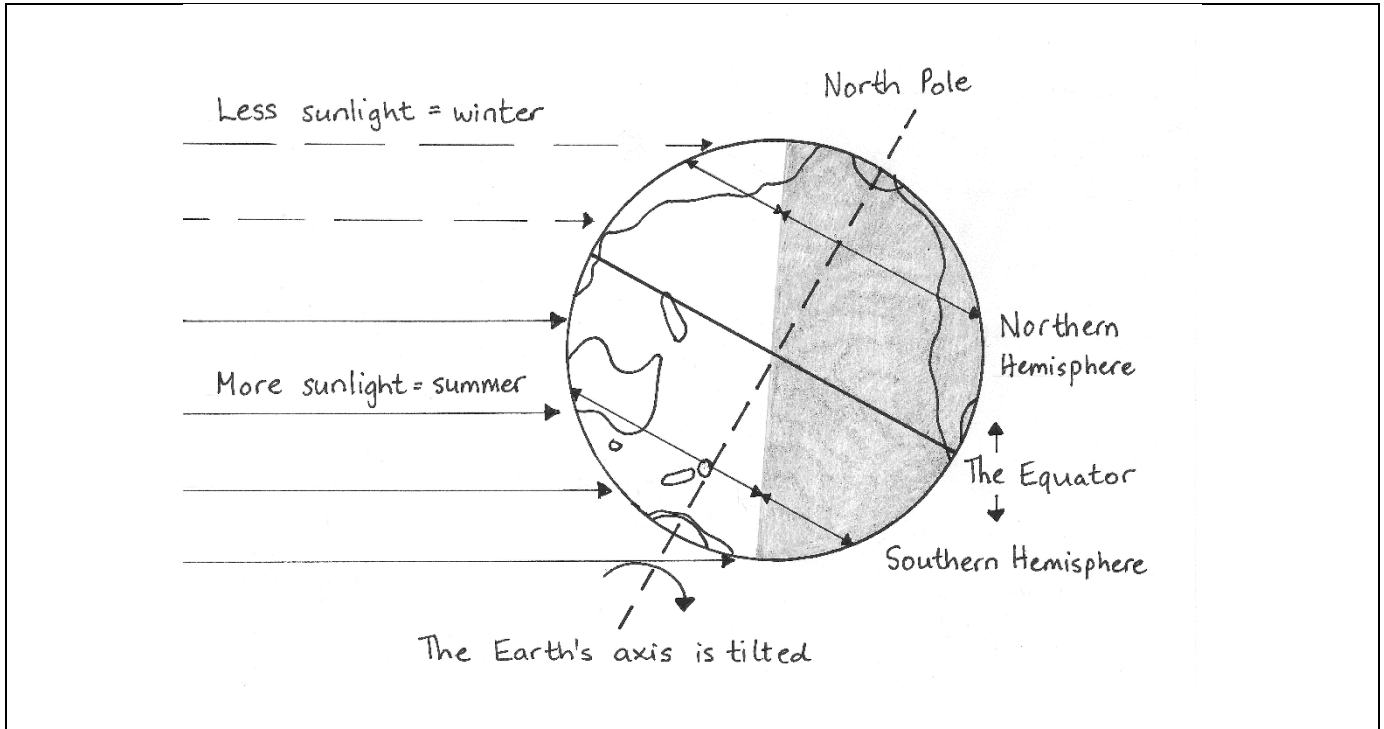 North Pole
Less sunlight = winter
Northern
Hemisphere
More sunlight = summer
The Equator
Southern Hemisphere
The Earth's axis is tilted